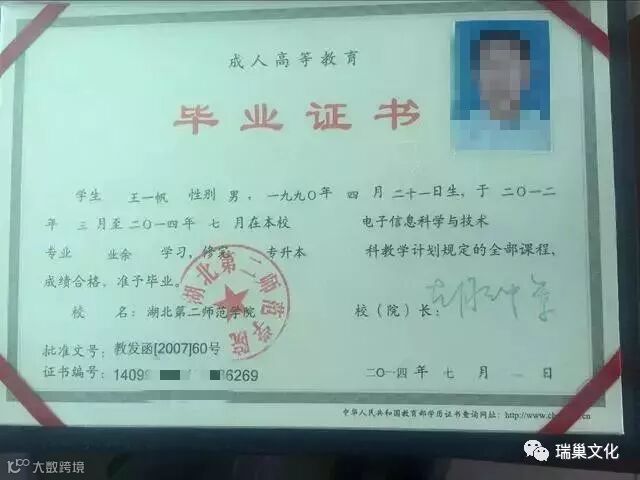 成人高等教育
毕业证书
学生 王一帆 性别 男，一九九〇年 四 月 二十一日生，于 二〇一二
年 三 月至 二〇一四年 七 月在本校 电子信息科学与技术
专业 业余 学习，修完 专升本 科教学计划规定的全部课程，
成绩合格，准予毕业。
校 名：湖北第二师范学院 校（院）长：
湖北第二师范学院
批准文号：教发函[2007]60号
证书编号：1409 6269 二〇一四年 七 月 一 日
中华人民共和国教育部学历证书查询网址：http://www.ch .cn
瑞巢文化
大数跨境